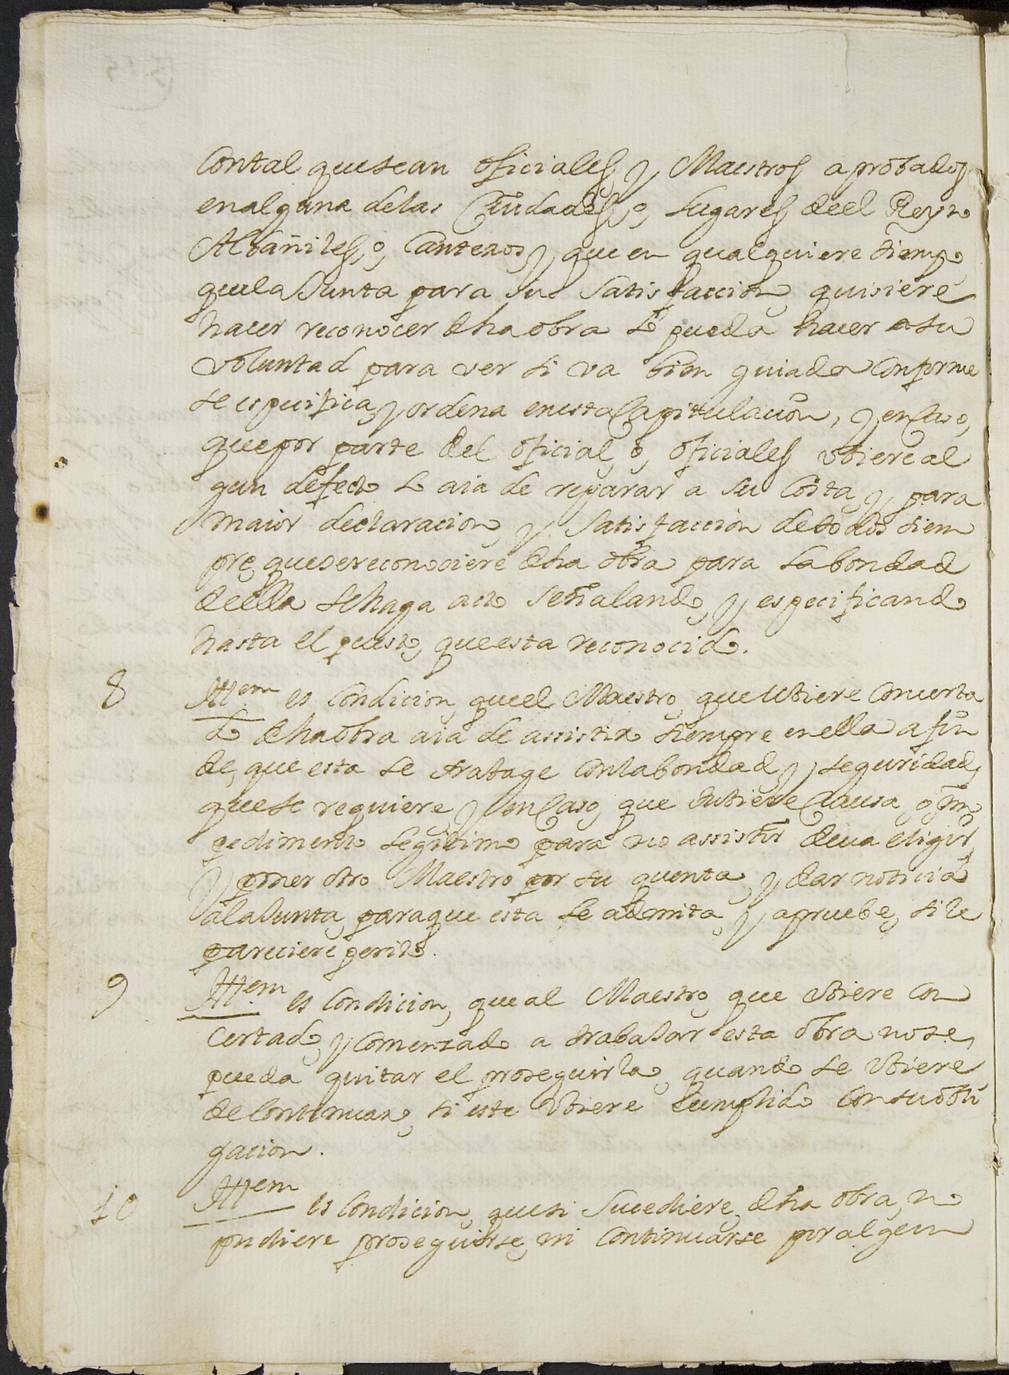 Contal quesean oficiales, y Maestros aprobados
enalguna delas Ciudades, o, Lugares deel Reyno
Albañiles, o, Canteros, y que en qualquiere tiempo
quela Junta para su Satisfaccion quisiere
hacer reconocer dha obra lo pueda hacer a su
voluntad para ver si va bien guiada conforme
se especifica, y ordena enesta Capitulacion, y en Caso,
que por parte del oficial, o, oficiales vbiere al
gun defecto lo aia de reparar a su Costa, y para
maior declaracion, y Satisfaccion detodos siem
pre, quesereconociere dha obra para la bondad
deella sehaga acto señalando, y especificando
hasta el puesto, queesta reconocido.
8 Ittem es Condicion, queel Maestro, que Vbiere Concerta
do dhaobra aia de assistir siempre enella a fin
de, que esta se trabage conlabondad, y seguridad,
quese requiere, y en Caso, que tubiere Causa, o im
pedimento legitimo para no assistir deua eligir,
y poner otro Maestro por su quenta, y dar noticia
alaJunta, paraque esta le admita, y apruebe, si le
pareciere perito.
9 Ittem es Condicion, que al Maestro, que vbiere Con
certado, y Comenzado a trabaJar esta obra nose,
pueda quitar el proseguirla, quando se vbiere
de Continuar, si este vbiere Cumplido Con su obli
gacion.
10 Ittem es Condicion, quesi Sucediere, dha obra, no
pudiere proseguirse, ni Continuarse por algun